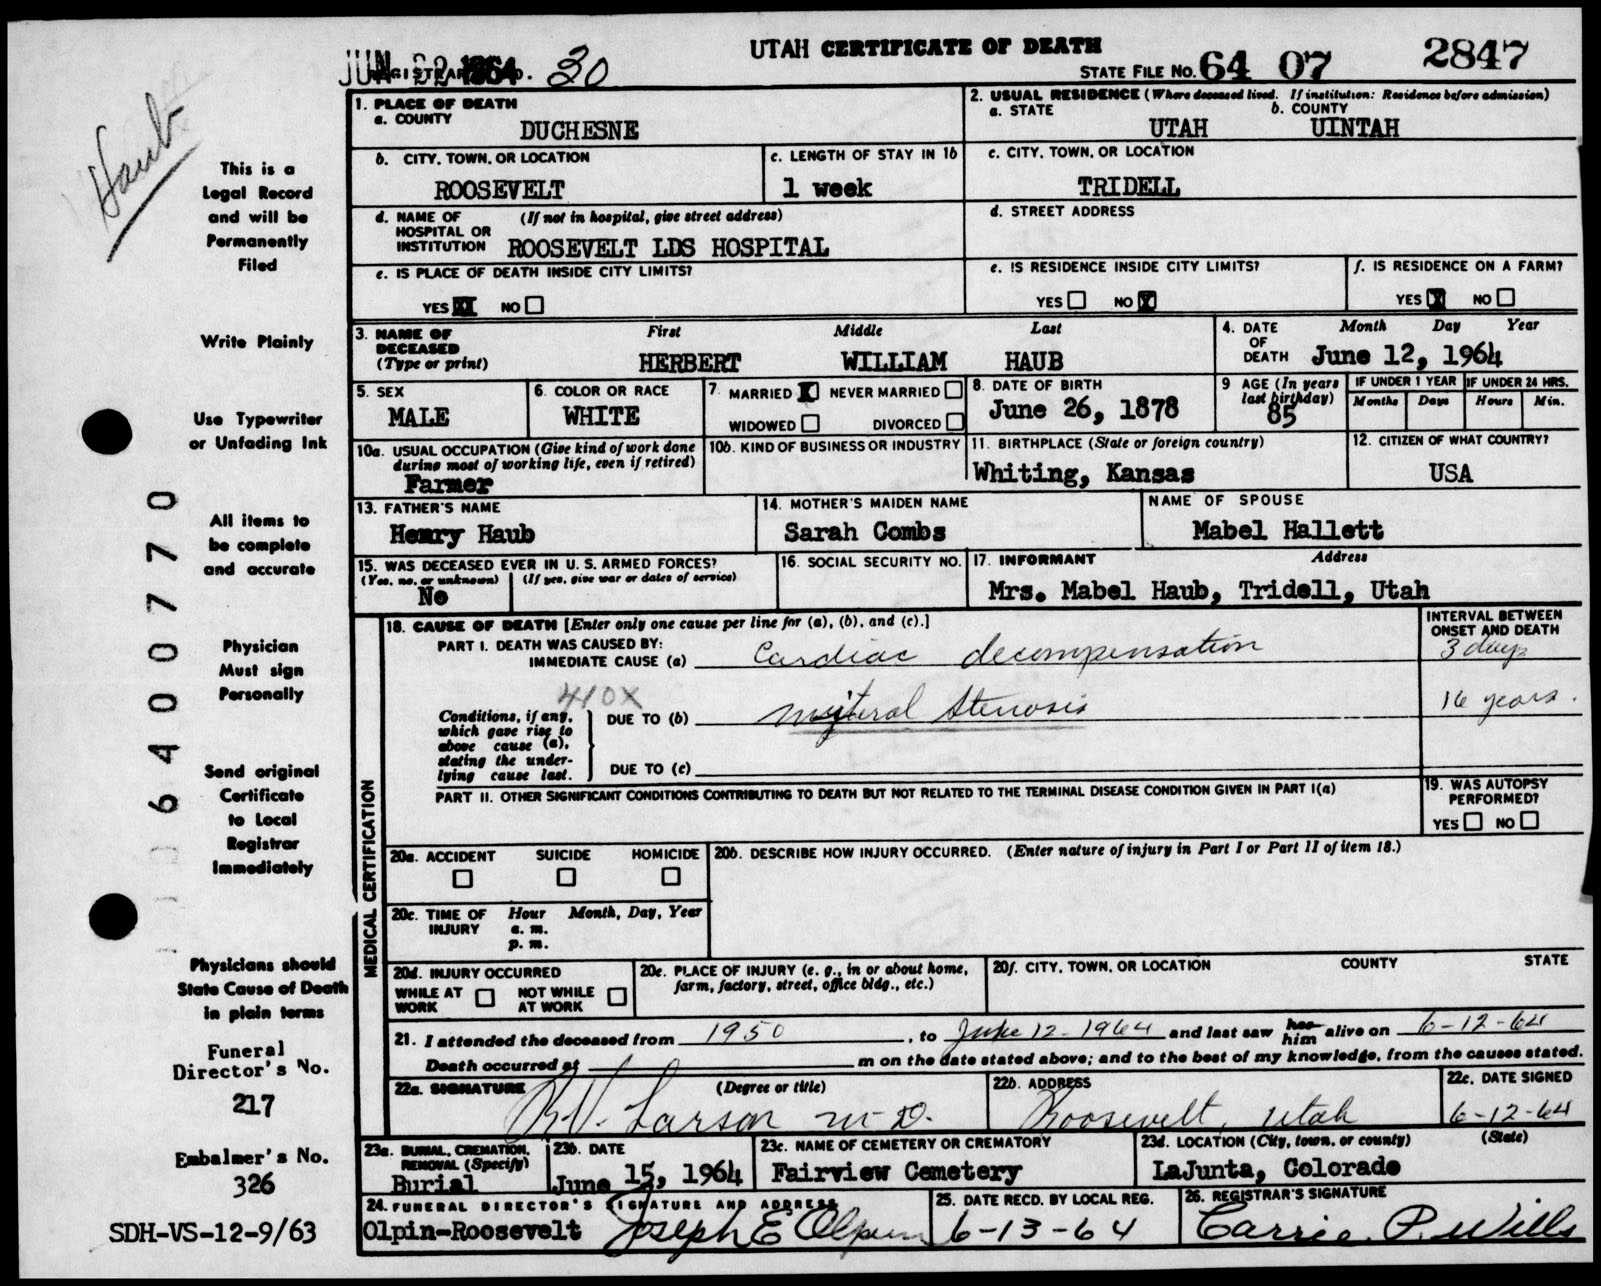 UTAH CERTIFICATE OF DEATH
JUN 22 1964
REGISTRAR'S NO. 30
STATE FILE NO. 64 07 2847
Haub
This is a
Legal Record
and will be
Permanently
Filed
Write Plainly
Use Typewriter
or Unfading Ink
All items to
be complete
and accurate
Physician
Must sign
Personally
Send original
Certificate
to Local
Registrar
Immediately
Physicians should
State Cause of Death
in plain terms
Funeral
Director's No.
217
Embalmer's No.
326
SDH-VS-12-9/63
6400770
1. PLACE OF DEATH
a. COUNTY
DUCHESNE
2. USUAL RESIDENCE (Where deceased lived. If institution: Residence before admission)
a. STATE b. COUNTY
UTAH UINTAH
b. CITY, TOWN, OR LOCATION
ROOSEVELT
c. LENGTH OF STAY IN 1b
1 week
c. CITY, TOWN, OR LOCATION
TRIDELL
d. NAME OF (If not in hospital, give street address)
HOSPITAL OR
INSTITUTION ROOSEVELT LDS HOSPITAL
d. STREET ADDRESS
e. IS PLACE OF DEATH INSIDE CITY LIMITS?
YES XX NO
e. IS RESIDENCE INSIDE CITY LIMITS?
YES NO X
f. IS RESIDENCE ON A FARM?
YES X NO
3. NAME OF First Middle Last
DECEASED
(Type or print) HERBERT WILLIAM HAUB
4. DATE Month Day Year
OF
DEATH June 12, 1964
5. SEX
MALE
6. COLOR OR RACE
WHITE
7. MARRIED X NEVER MARRIED
WIDOWED DIVORCED
8. DATE OF BIRTH
June 26, 1878
9 AGE (In years
last birthday)
85
IF UNDER 1 YEAR IF UNDER 24 HRS.
Months Days Hours Min.
10a. USUAL OCCUPATION (Give kind of work done
during most of working life, even if retired)
Farmer
10b. KIND OF BUSINESS OR INDUSTRY
11. BIRTHPLACE (State or foreign country)
Whiting, Kansas
12. CITIZEN OF WHAT COUNTRY?
USA
13. FATHER'S NAME
Henry Haub
14. MOTHER'S MAIDEN NAME
Sarah Combs
NAME OF SPOUSE
Mabel Hallett
15. WAS DECEASED EVER IN U. S. ARMED FORCES?
(Yes, no, or unknown) (If yes, give war or dates of service)
No
16. SOCIAL SECURITY NO.
17. INFORMANT Address
Mrs. Mabel Haub, Tridell, Utah
MEDICAL CERTIFICATION
18. CAUSE OF DEATH [Enter only one cause per line for (a), (b), and (c).]
INTERVAL BETWEEN
ONSET AND DEATH
PART I. DEATH WAS CAUSED BY:
IMMEDIATE CAUSE (a) Cardiac decompensation 3 days
410X
Conditions, if any,
which gave rise to
above cause (a),
stating the under-
lying cause last.
DUE TO (b) mytral Stenosis 16 years.
DUE TO (c)
PART II. OTHER SIGNIFICANT CONDITIONS CONTRIBUTING TO DEATH BUT NOT RELATED TO THE TERMINAL DISEASE CONDITION GIVEN IN PART I(a)
19. WAS AUTOPSY
PERFORMED?
YES NO
20a. ACCIDENT SUICIDE HOMICIDE
20b. DESCRIBE HOW INJURY OCCURRED. (Enter nature of injury in Part I or Part II of item 18.)
20c. TIME OF Hour Month, Day, Year
INJURY a. m.
p. m.
20d. INJURY OCCURRED
WHILE AT NOT WHILE
WORK AT WORK
20e. PLACE OF INJURY (e. g., in or about home,
farm, factory, street, office bldg., etc.)
20f. CITY, TOWN, OR LOCATION COUNTY STATE
21. I attended the deceased from 1950, to June 12-1964 and last saw her him alive on 6-12-64
Death occurred at m on the date stated above; and to the best of my knowledge, from the causes stated.
22a. SIGNATURE (Degree or title)
R.V. Larson M-D.
22b. ADDRESS
Roosevelt, Utah
22c. DATE SIGNED
6-12-64
23a. BURIAL, CREMATION,
REMOVAL (Specify)
Burial
23b. DATE
June 15, 1964
23c. NAME OF CEMETERY OR CREMATORY
Fairview Cemetery
23d. LOCATION (City, town, or county) (State)
LaJunta, Colorado
24. FUNERAL DIRECTOR'S SIGNATURE AND ADDRESS
Olpin-Roosevelt Joseph E Olpin
25. DATE RECD. BY LOCAL REG.
6-13-64
26. REGISTRAR'S SIGNATURE
Carrie P. Wills